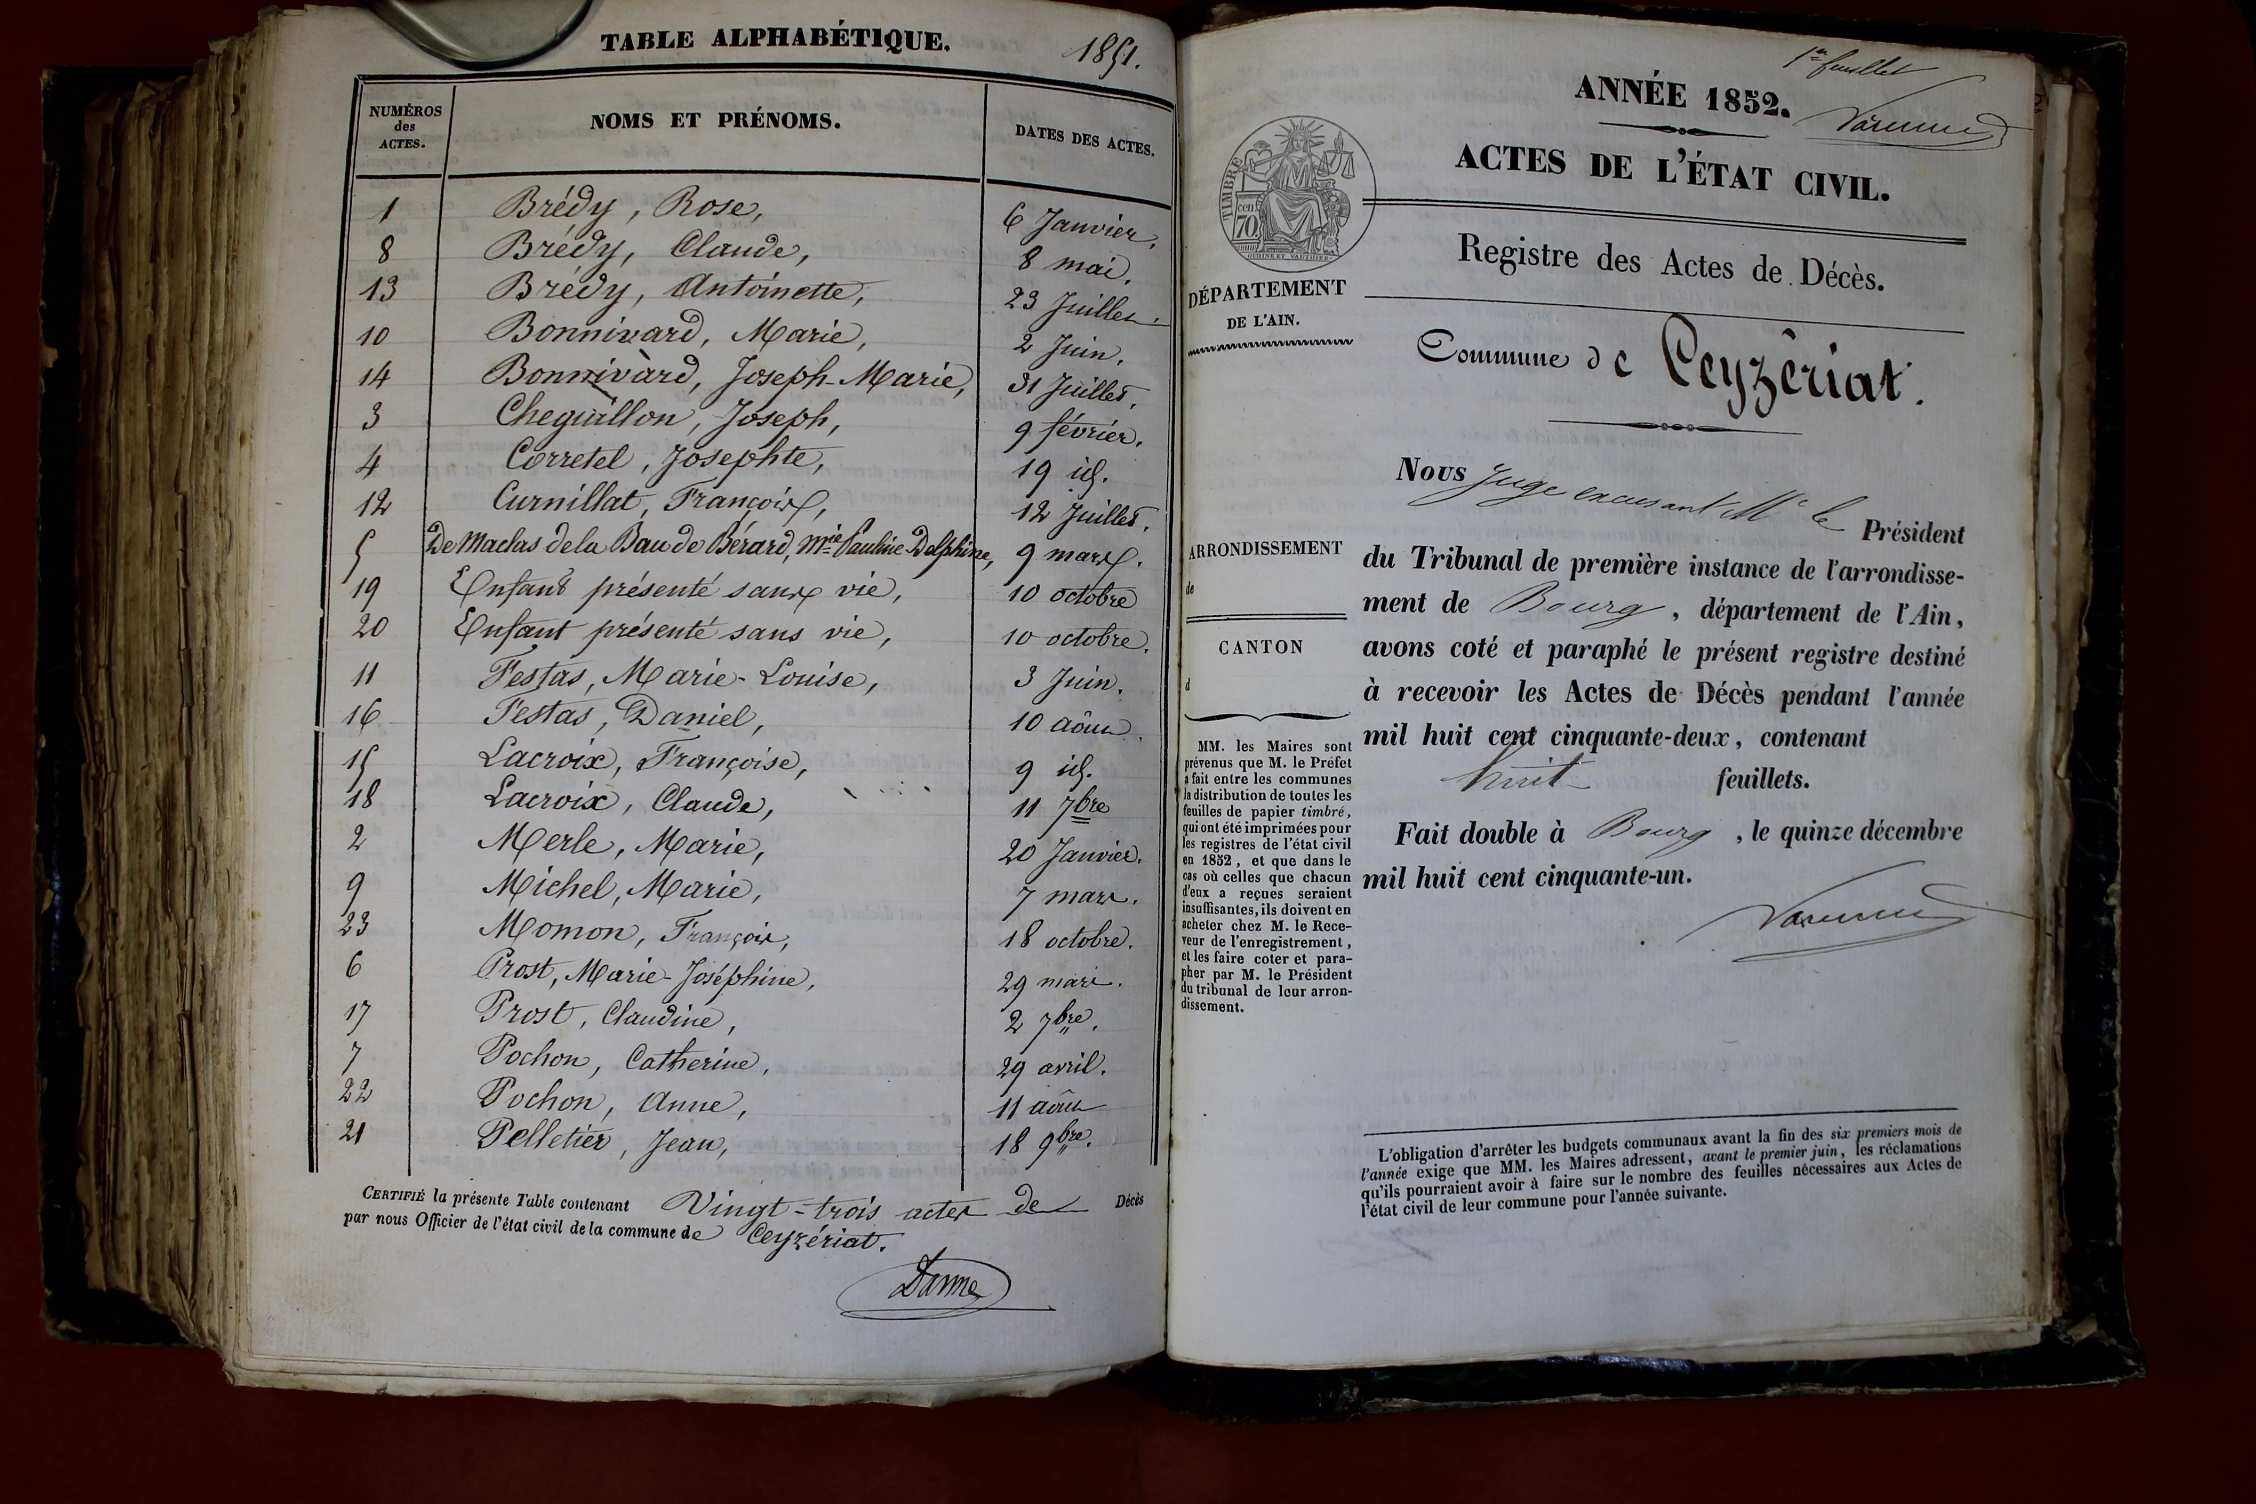 TABLE ALPHABÉTIQUE. 1851.
NUMÉROS des ACTES. NOMS ET PRÉNOMS. DATES DES ACTES.
1 Brédy, Rose, 6 Janvier.
8 Brédy, Claude, 8 mai.
13 Brédy, Antoinette, 23 Juillet.
10 Bonnivard, Marie, 2 Juin.
14 Bonnivard, Joseph-Marie, 31 Juillet.
3 Cheguillon, Joseph, 9 février.
4 Corretel, Josephte, 19 id.
12 Curnillat, François, 12 Juillet.
5 De Maclas de la Bau de Bérard, Mie Pauline Delphine, 9 mars.
19 Enfant présenté sans vie, 10 octobre
20 Enfant présenté sans vie, 10 octobre.
11 Festas, Marie-Louise, 3 Juin.
16 Festas, Daniel, 10 aôut.
15 Lacroix, Françoise, 9 id.
18 Lacroix, Claude, 11 7bre
2 Merle, Marie, 20 Janvier.
9 Michel, Marie, 7 mars.
23 Momon, François, 18 octobre.
6 Prost, Marie-Joséphine, 29 mars.
17 Prost, Claudine, 2 7bre.
7 Pochon, Catherine, 29 avril.
22 Pochon, Anne, 11 aôut
21 Pelletier, Jean, 18 9bre.
CERTIFIÉ la présente Table contenant Vingt-trois actes de Décès
par nous Officier de l'état civil de la commune de Ceyzériat.
Darme
1er feuillet
ANNÉE 1852.
ACTES DE L'ÉTAT CIVIL.
TIMBRE
70 cen.
OUDINE ET VAUTHIER
Registre des Actes de Décès.
DÉPARTEMENT
DE L'AIN.
Commune de Ceyzériat.
Nous Juge excusant Mr le Président
du Tribunal de première instance de l'arrondisse-
ment de Bourg, département de l'Ain,
avons coté et paraphé le présent registre destiné
à recevoir les Actes de Décès pendant l'année
mil huit cent cinquante-deux, contenant
huit feuillets.
Fait double à Bourg, le quinze décembre
mil huit cent cinquante-un.
ARRONDISSEMENT
de
CANTON
d
MM. les Maires sont
prévenus que M. le Préfet
a fait entre les communes
la distribution de toutes les
feuilles de papier timbré,
qui ont été imprimées pour
les registres de l'état civil
en 1852, et que dans le
cas où celles que chacun
d'eux a reçues seraient
insuffisantes, ils doivent en
acheter chez M. le Rece-
veur de l'enregistrement,
et les faire coter et para-
pher par M. le Président
du tribunal de leur arron-
dissement.
L'obligation d'arrêter les budgets communaux avant la fin des six premiers mois de
l'année exige que MM. les Maires adressent, avant le premier juin, les réclamations
qu'ils pourraient avoir à faire sur le nombre des feuilles nécessaires aux Actes de
l'état civil de leur commune pour l'année suivante.